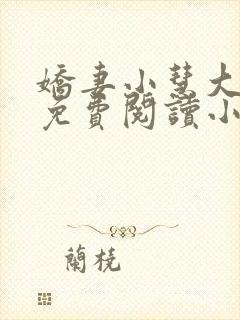 嬌妻小慧大
免費閱讀小
蘭橈